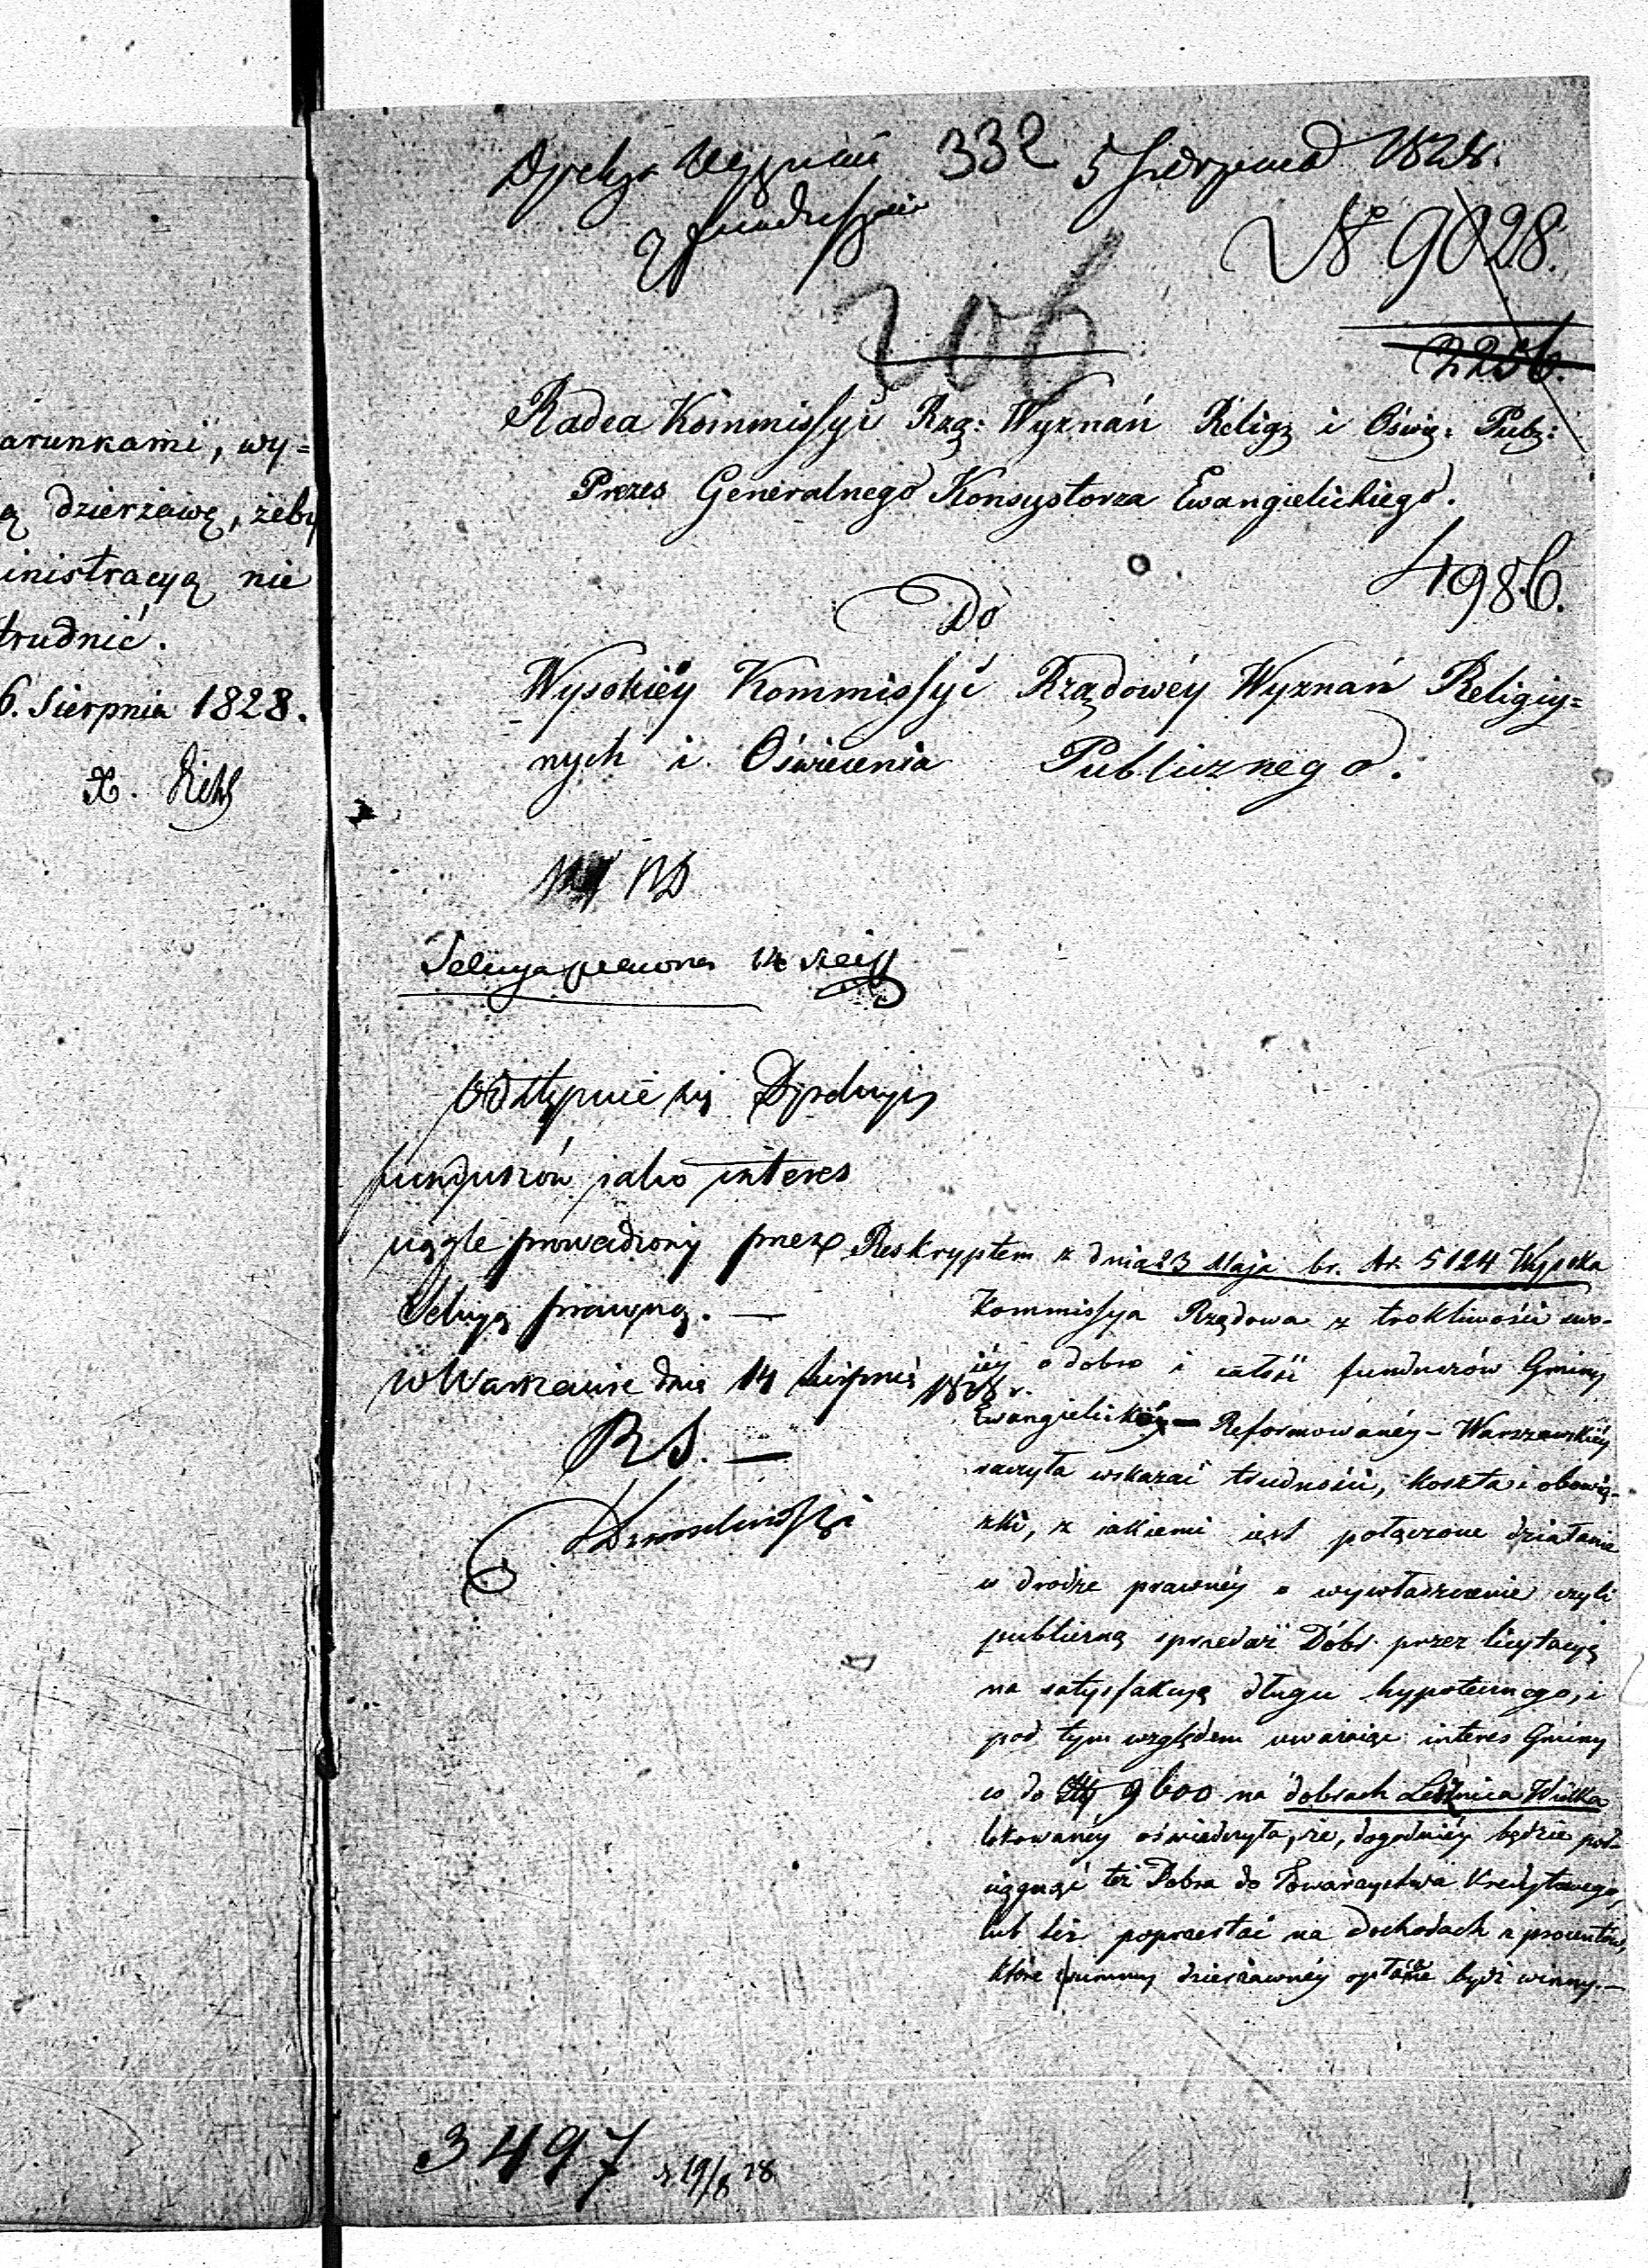 arunkami, wy=
ą dzierżawę, żeby
inistracyą nie
trudnić.
6. Sierpnia 1828.
X.
332 5 Sierpnia 1828.
N 9028.
206
2256.
Radca Kommissyi Rzą: Wyznań Religij i Oświe: Publ:
Prezes Generalnego Konsystorza Ewangielickiego.
4986.
Do
Wysokiéy Kommissyi Rządowéy Wyznań Religiy=
nych i Oświecenia Publicznego.
Sekcya prawna 14
Odstępuie się Dyrekcyi
funduszów jako interes
ciągle prowadzony przez
Sekcyą prawną. —
w Warszawie dnia 14 Sierpnia 1828 r.
RS. —
Reskryptem z dnia 23 Maja br. Nr. 5124 Wysoka
Kommissya Rządowa z troskliwości swo-
iéy o dobro i całość funduszów Gminy
Ewangielickiéy — Reformowanéy — Warszawskiéy
raczyła wskazać trudności, koszta i obowią-
zki, z iakiemi iest połączone działanie
w drodze prawnéy o wywłaszczenie czyli
publiczną sprzedaż Dóbr przez licytacyą
na satysfakcyą długu hypotecznego, i
pod tym względem uważaiąc interes Gminy
co do Złł 9600 na dobrach Leśznica Wielka
lokowanéy oświadczyła, że, dogodniéy będzie pod-
ciągnąć też Dobra do Towarzystwa Kredytowego,
lub też poprzestać na dochodach z procentów,
które z summy dzierżawnéy opłacane bydź winny. —
3497 z 19/8 28